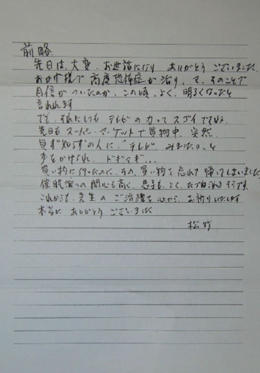 前略
先日は、大変、お世話になり ありがとうございました。
おかげ様で 高度恐怖症が治り、で、そのことで
自信がついたのか、この頃、よく、明るくなったと
言われます
で、それにしても テレビの力って スゴイですね。
先日も スーパーマーケットで 買物中、突然、
見ず知らずの人に、"テレビ みましたョ"と
声をかけられ、ドギマギ・・・
買い物に行ったのに、その、買い物を忘れて帰ってしまいました
催眠術への関心も高く、
これからも、先生の ご活躍を 心から、お祈りいたします
本当に ありがとう ございました